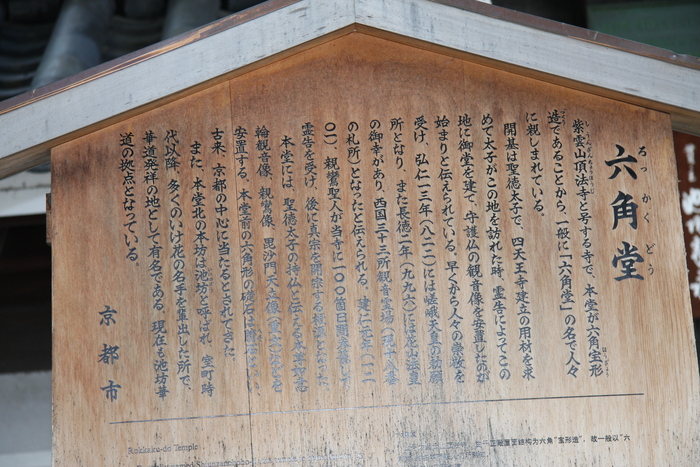 六角堂
ろっかくどう
紫雲山頂法寺と号する寺で、本堂が六角宝形
造であることから、一般に「六角堂」の名で人々
に親しまれている。
開基は聖徳太子で、四天王寺建立の用材を求
めて太子がこの地を訪れた時、霊告によってこの
地に御堂を建て、守護仏の観音像を安置したのが
始まりと伝えられている。早くから人々の崇敬を
受け、弘仁十三年(八二二)には嵯峨天皇の勅願
所となり、また長徳二年(九九六)には花山法皇
の御幸があり、西国三十三所観音霊場(現十八番
の札所)となったと伝えられる。建仁元年(一二
〇一)、親鸞聖人が当寺に一〇〇箇日間参籠して
霊告を受け、後に真宗を開宗する
本堂には、聖徳太子の持仏と伝える
輪観音像、親鸞像、毘沙門天立像
安置する。本堂前の六角形の礎石は
古来、京都の中心に当たるとされてきた。
また、本堂北の本坊は池坊と呼ばれ、室町時
代以降、多くのいけ花の名手を輩出した所で、
華道発祥の地として有名である。現在も池坊華
道の拠点となっている。
京都市
Rokkaku-do Temple
正殿屋宇结构为六角"宝形造",故一般以"六